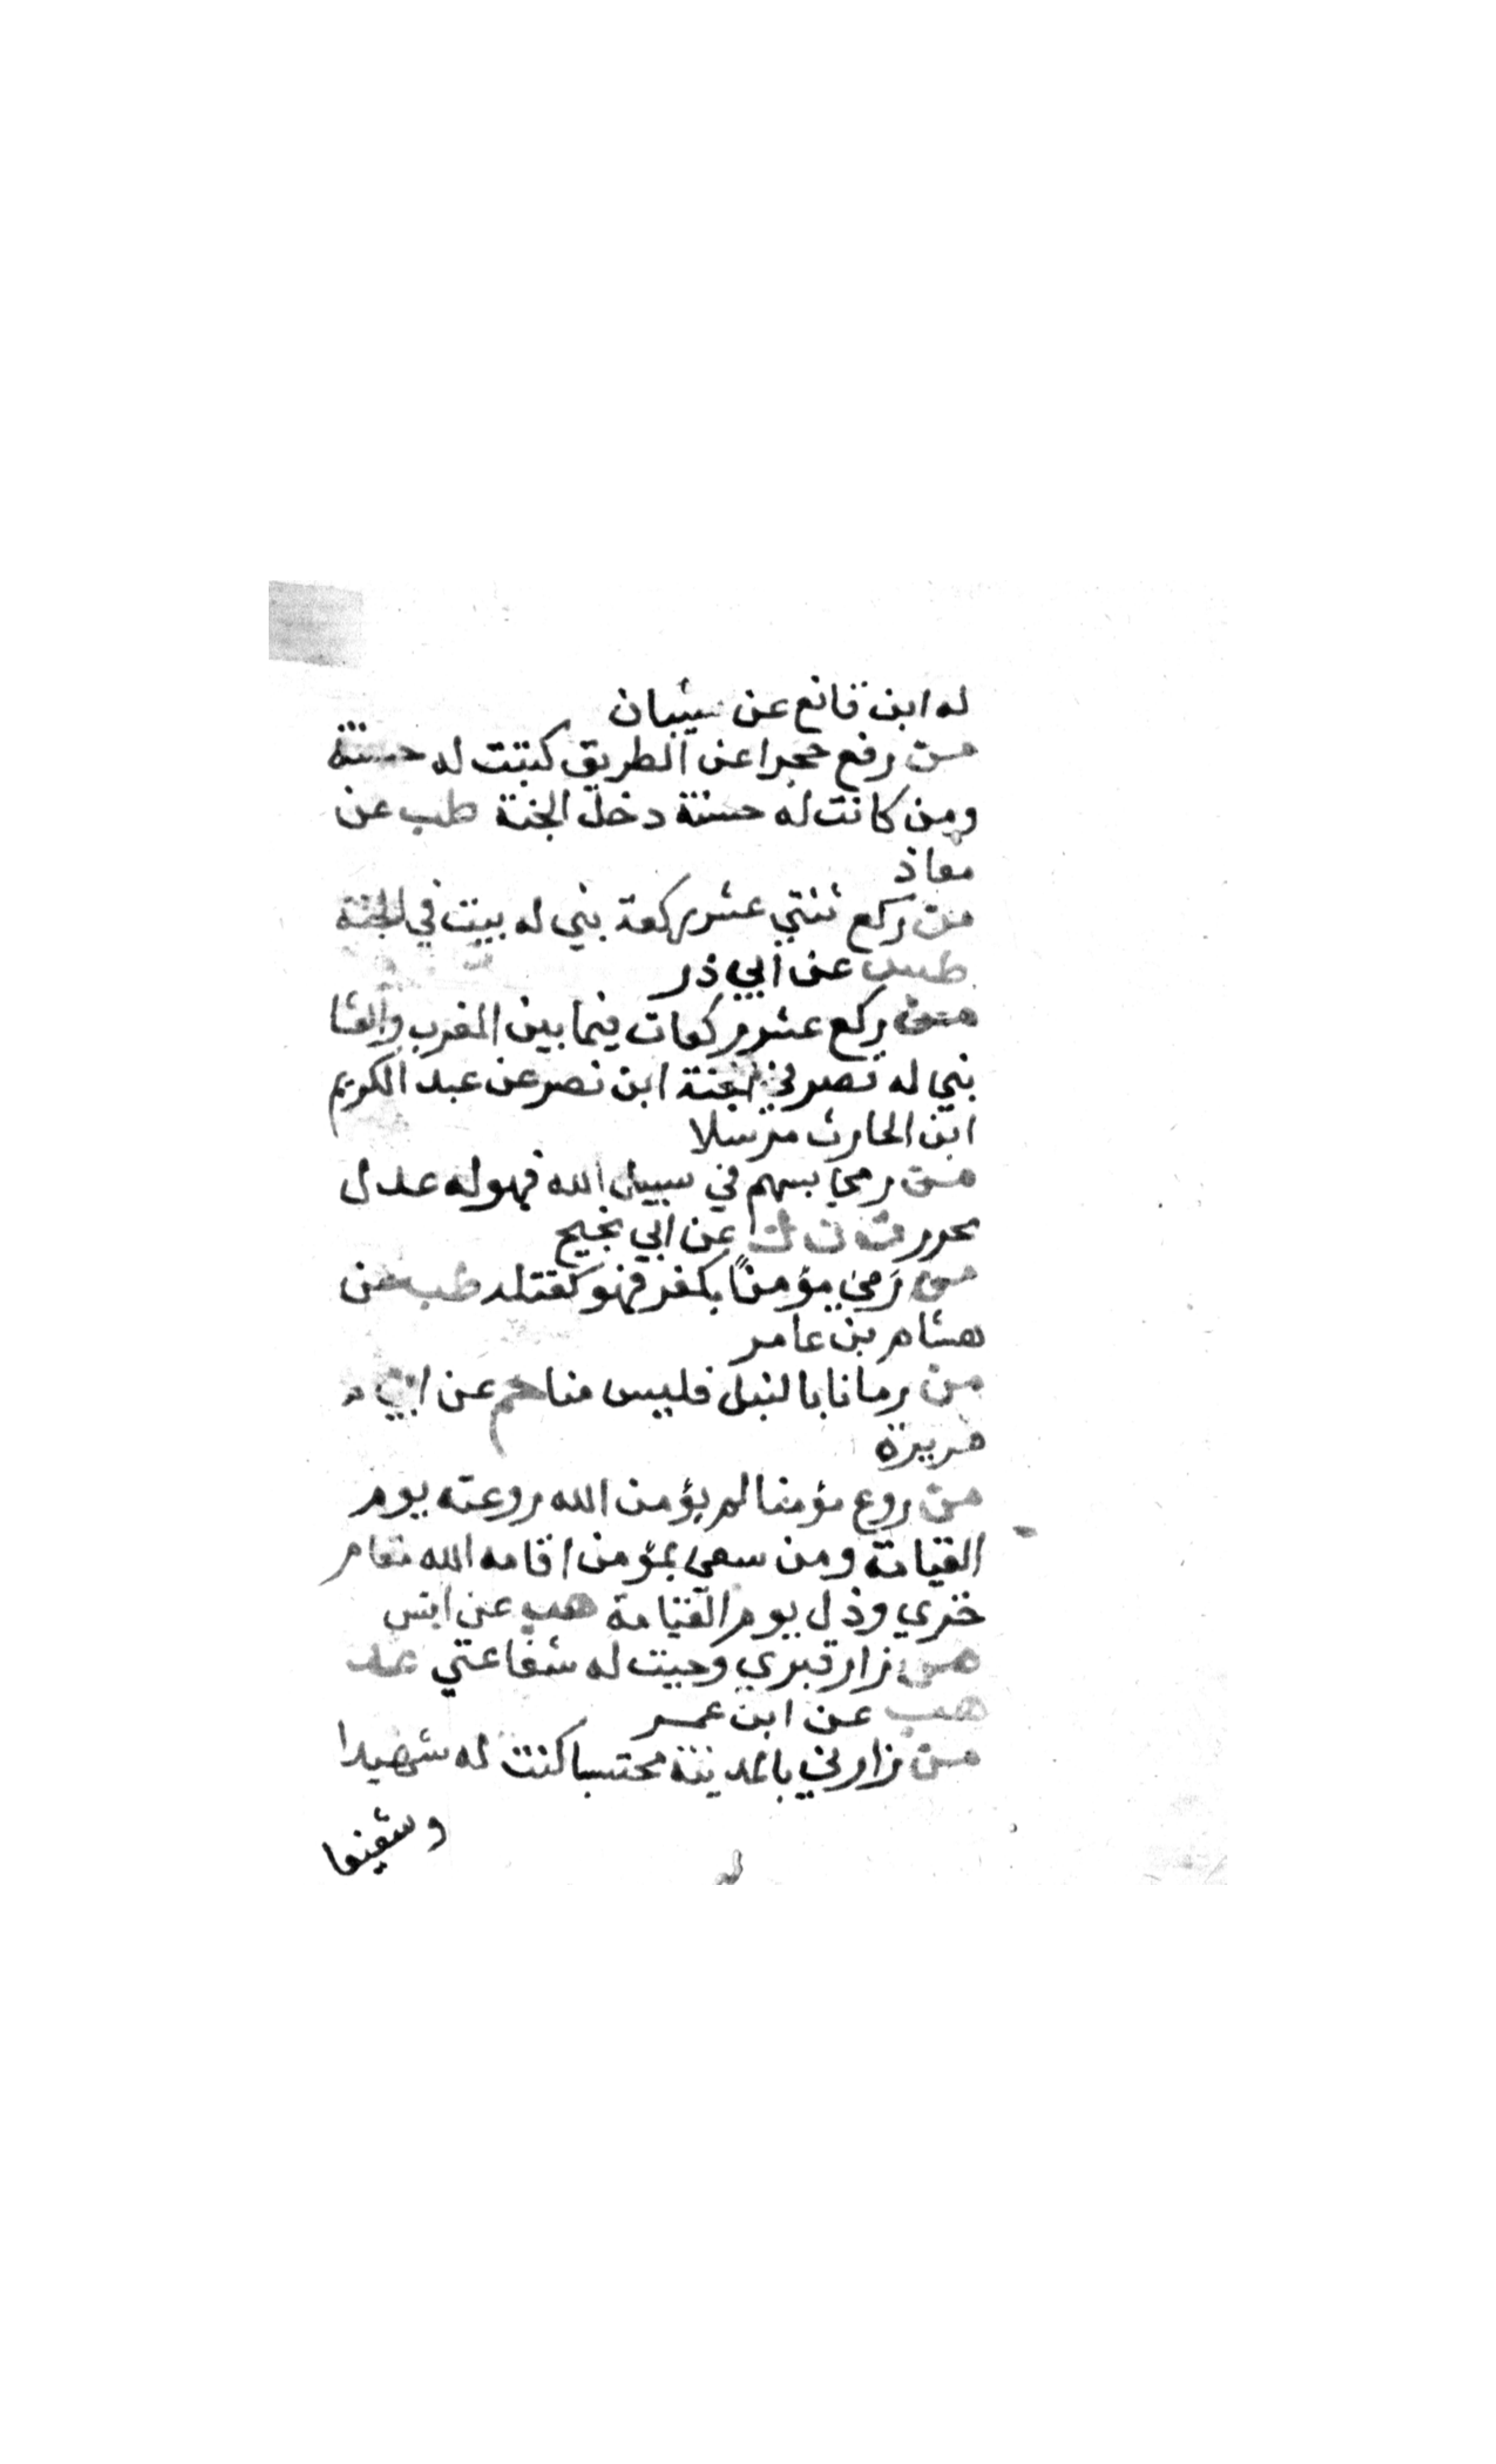 له ابن قانع عن شيبان
من رفع حجرا عن الطريق كتبت له حسنة
ومن كانت له حسنة دخل الجنة طب عن
معاذ
من ركع ثنتي عشر ركعة بني له بيت في الجنة
طس عن أبي ذر
من ركع عشر ركعات فيما بين المغرب والعشا
بني له قصر في الجنة ابن نصر عن عبد الكريم
ابن الحارث مرسلا
من رمى بسهم في سبيل الله فهو له عدل
محرر ت ن ك عن ابي نجيح
من رَمى مؤمنًا بكفر فهو كقتله طب عن
هشام بن عامر
من رمانا بالنبل فليس منا حم عن ابي
هريرة
من روع مؤمنا لم يؤمن الله روعته يوم
القيامة ومن سعى بمؤمن اقامه الله مقام
خزي وذل يوم القيامة هب عن انس
من زار قبري وجبت له شفاعتي عد
هب عن ابن عمر
من زارني بالمدينة محتسبا كنت له شهيدا
وشفيعا